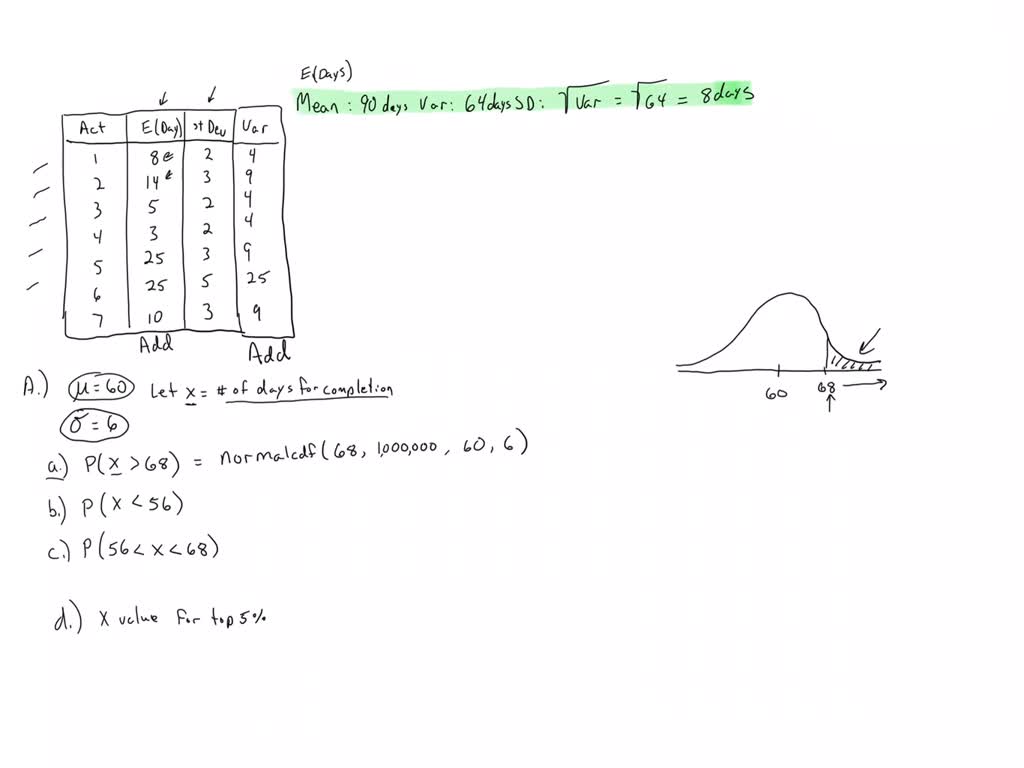 E(Days)
Mean : 90 days Var: 64 days SD: √Var = √64 = 8 days
Act E(Day) St Dev Var
1 8 2 4
2 14 3 9
3 5 2 4
4 3 2 4
5 25 3 9
6 25 5 25
7 10 3 9
Add Add
A.) μ = 60 Let x = # of days for completion
σ = 6
a.) P(x > 68) = normalcdf(68, 1,000,000, 60, 6)
b.) P(x < 56)
c.) P(56 < x < 68)
d.) x value for top 5%
60 68